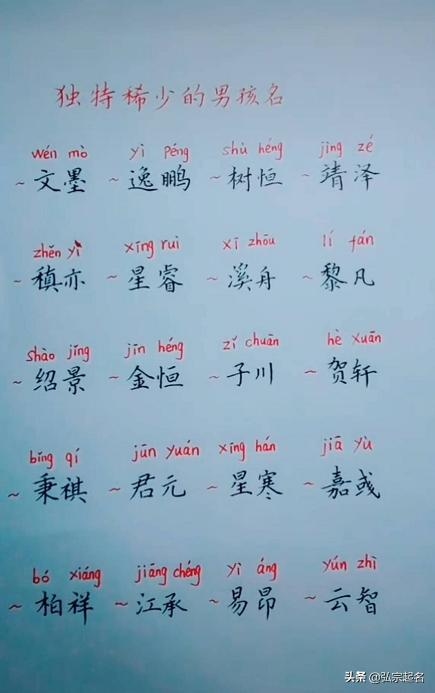 独特稀少的男孩名
wén mò yì péng shù héng jìng zé
~文墨 ~逸鹏 ~树恒 ~靖泽
zhěn yì xīng ruì xī zhōu lí fán
~稹亦 ~星睿 ~溪舟 ~黎凡
shào jǐng jīn héng zǐ chuān hè xuān
~绍景 ~金恒 ~子川 ~贺轩
bǐng qí jūn yuán xīng hán jiā yù
~秉祺 ~君元 ~星寒 ~嘉彧
bó xiáng jiāng chéng yì áng yún zhì
~柏祥 ~江承 ~易昂 ~云智
头条 @弘宗起名